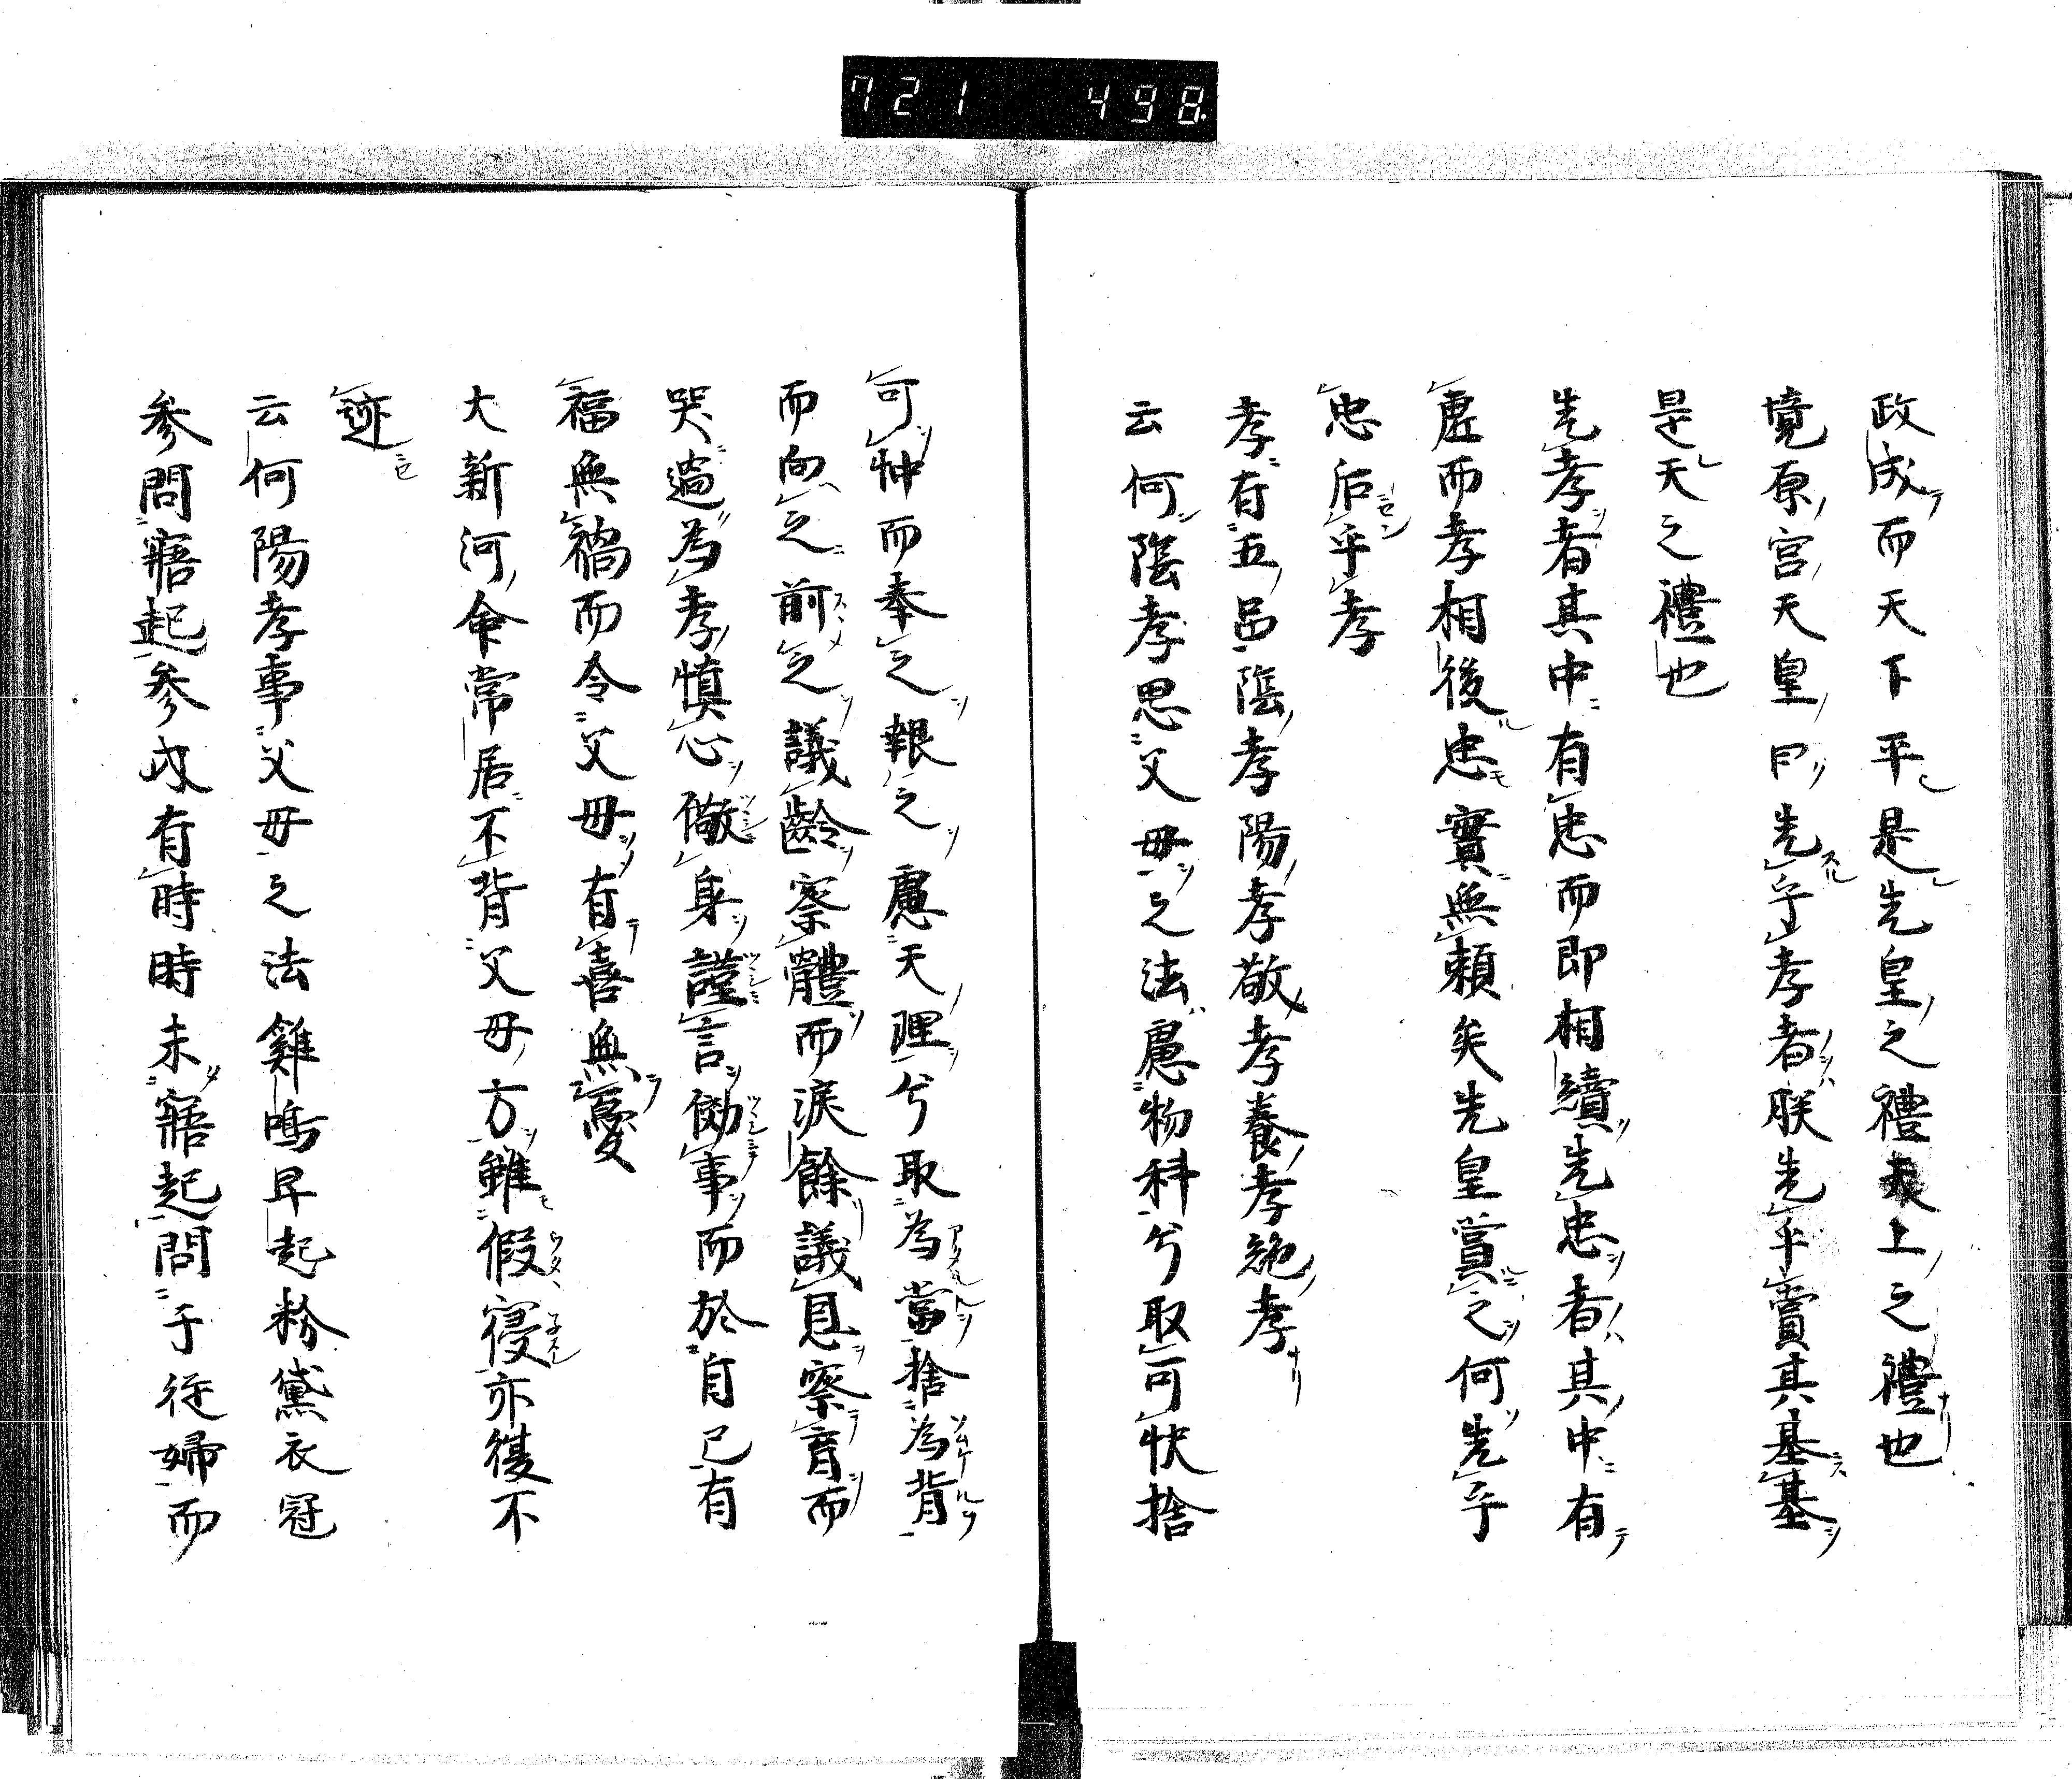 721 498
政成而天下平是先皇之禮天上之禮也
境原宮天皇曰先乎孝者朕先乎賣其基基
是天之禮也
先孝者其中有忠而即相續先忠者其中有
虛而孝相後忠實無賴矣先皇賞之何先乎
忠后乎孝
孝有五品陰孝陽孝敬孝養孝絶孝
云何陰孝思父母之法慮物科兮取可快捨
可忡而奉之報之慮天理兮取為當捨為背
而向之前之議齡察體而淚餘議息察育而
哭過為孝慎心儆身謹言効事而於自己有
福無禍而令父母有喜無憂
大新河命常居不背父母方雖假寢亦復不
迹
云何陽孝事父母之法雞鳴早起粉黛衣冠
參問寤起參內有時時未寤起問于從婦而